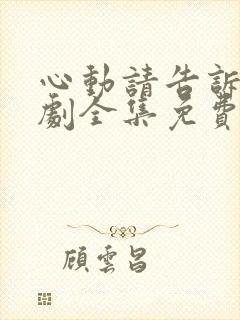 心動請告訴
劇全集免費
顧雲昌